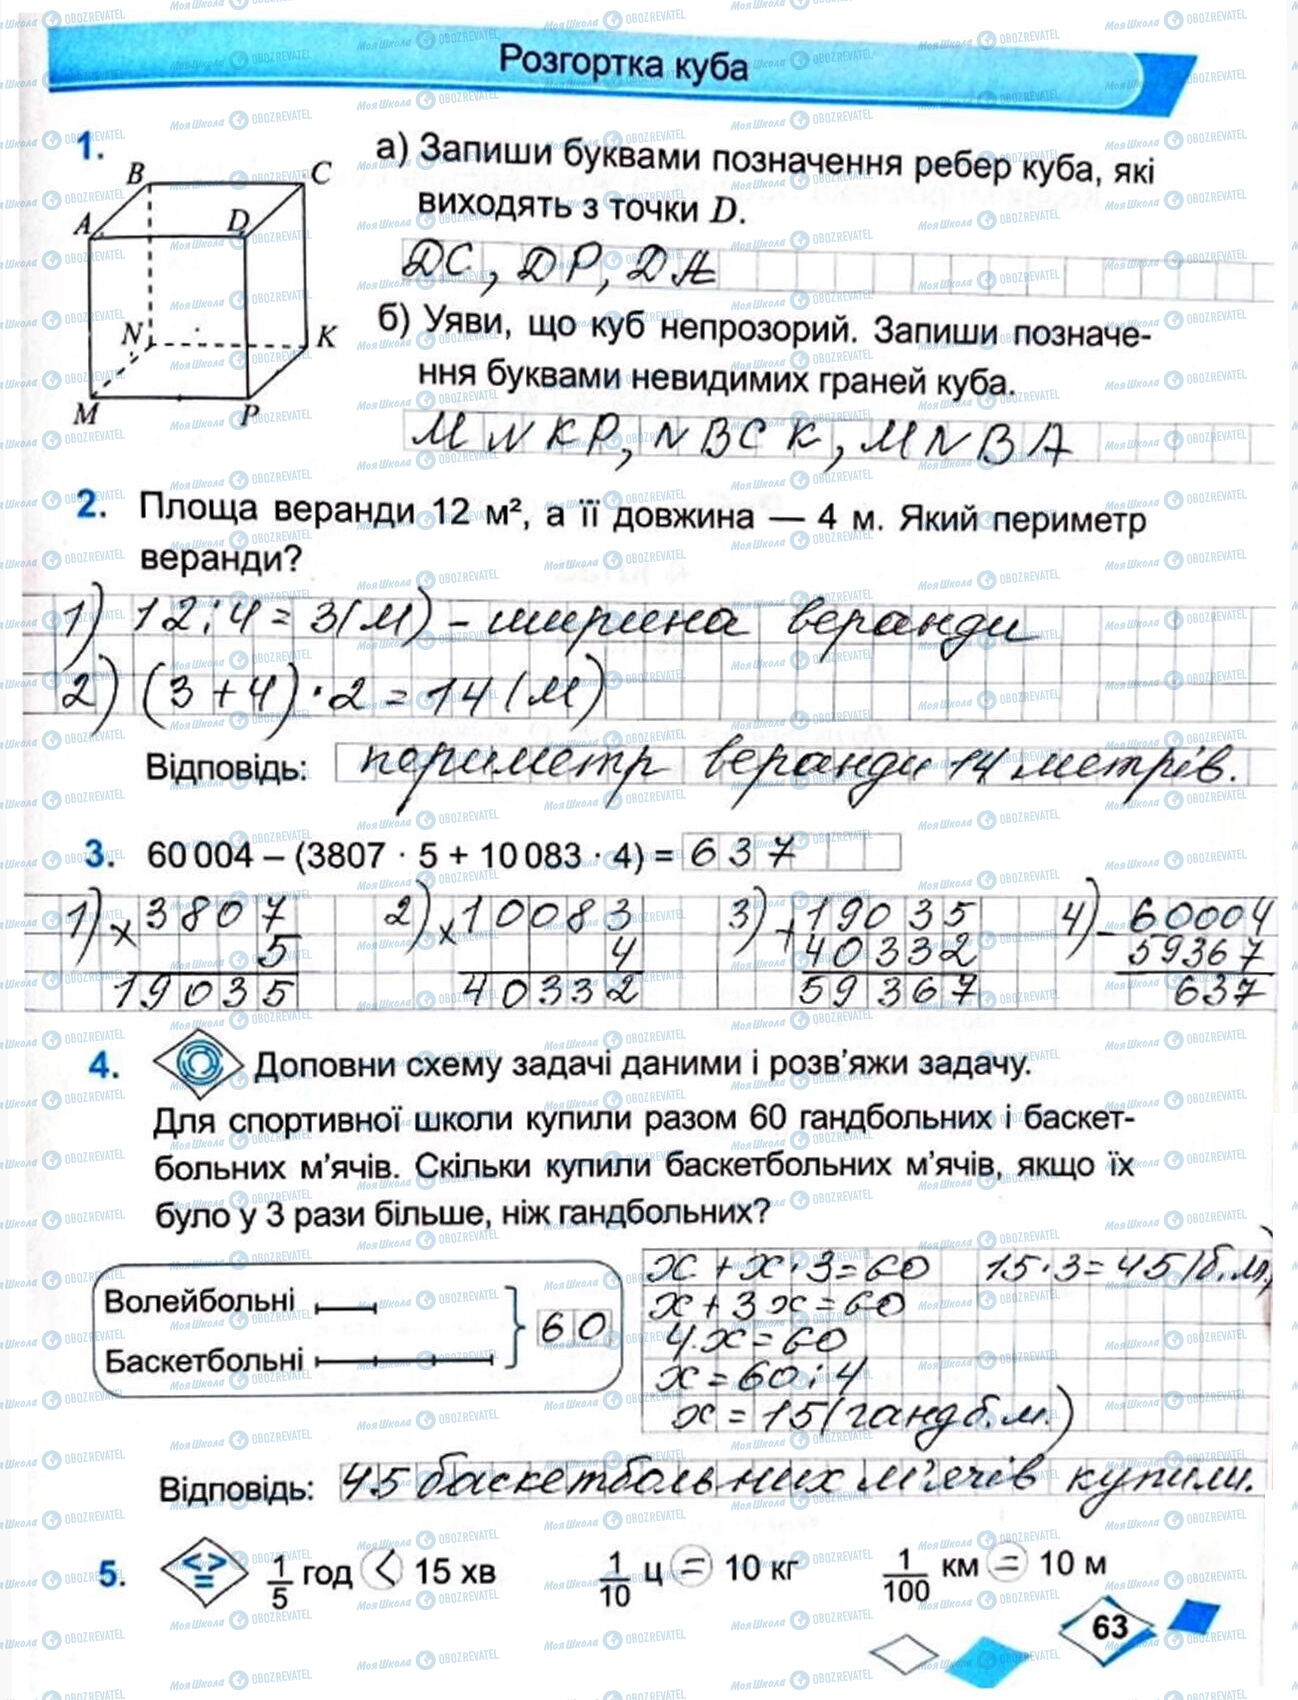 Розгортка куба
1.
а) Запиши буквами позначення ребер куба, які
виходять з точки D.
DC, DP, DA
б) Уяви, що куб непрозорий. Запиши позначе-
ння буквами невидимих граней куба.
MNKP, NBCK, MNBA
B C
A D
N K
M P
2. Площа веранди 12 м², а її довжина — 4 м. Який периметр
веранди?
1) 12:4=3(м) – ширина веранди
2) (3+4)·2=14(м)
Відповідь: периметр веранди 14 метрів.
3. 60 004 – (3807 · 5 + 10 083 · 4) = 637
1) × 3807 2) × 10083 3) + 19035 4) – 60004
5 4 40332 59367
19035 40332 59367 637
4. Доповни схему задачі даними і розв’яжи задачу.
Для спортивної школи купили разом 60 гандбольних і баскет-
больних м’ячів. Скільки купили баскетбольних м’ячів, якщо їх
було у 3 рази більше, ніж гандбольних?
Волейбольні
Баскетбольні
60
x + x·3=60 15·3=45(б.м.)
x+3x=60
4·x=60
x=60:4
x=15(гандб.м.)
Відповідь: 45 баскетбольних м'ячів купили.
5. < > = 1/5 год < 15 хв 1/10 ц = 10 кг 1/100 км = 10 м
63
МояШкола OBOZREVATEL